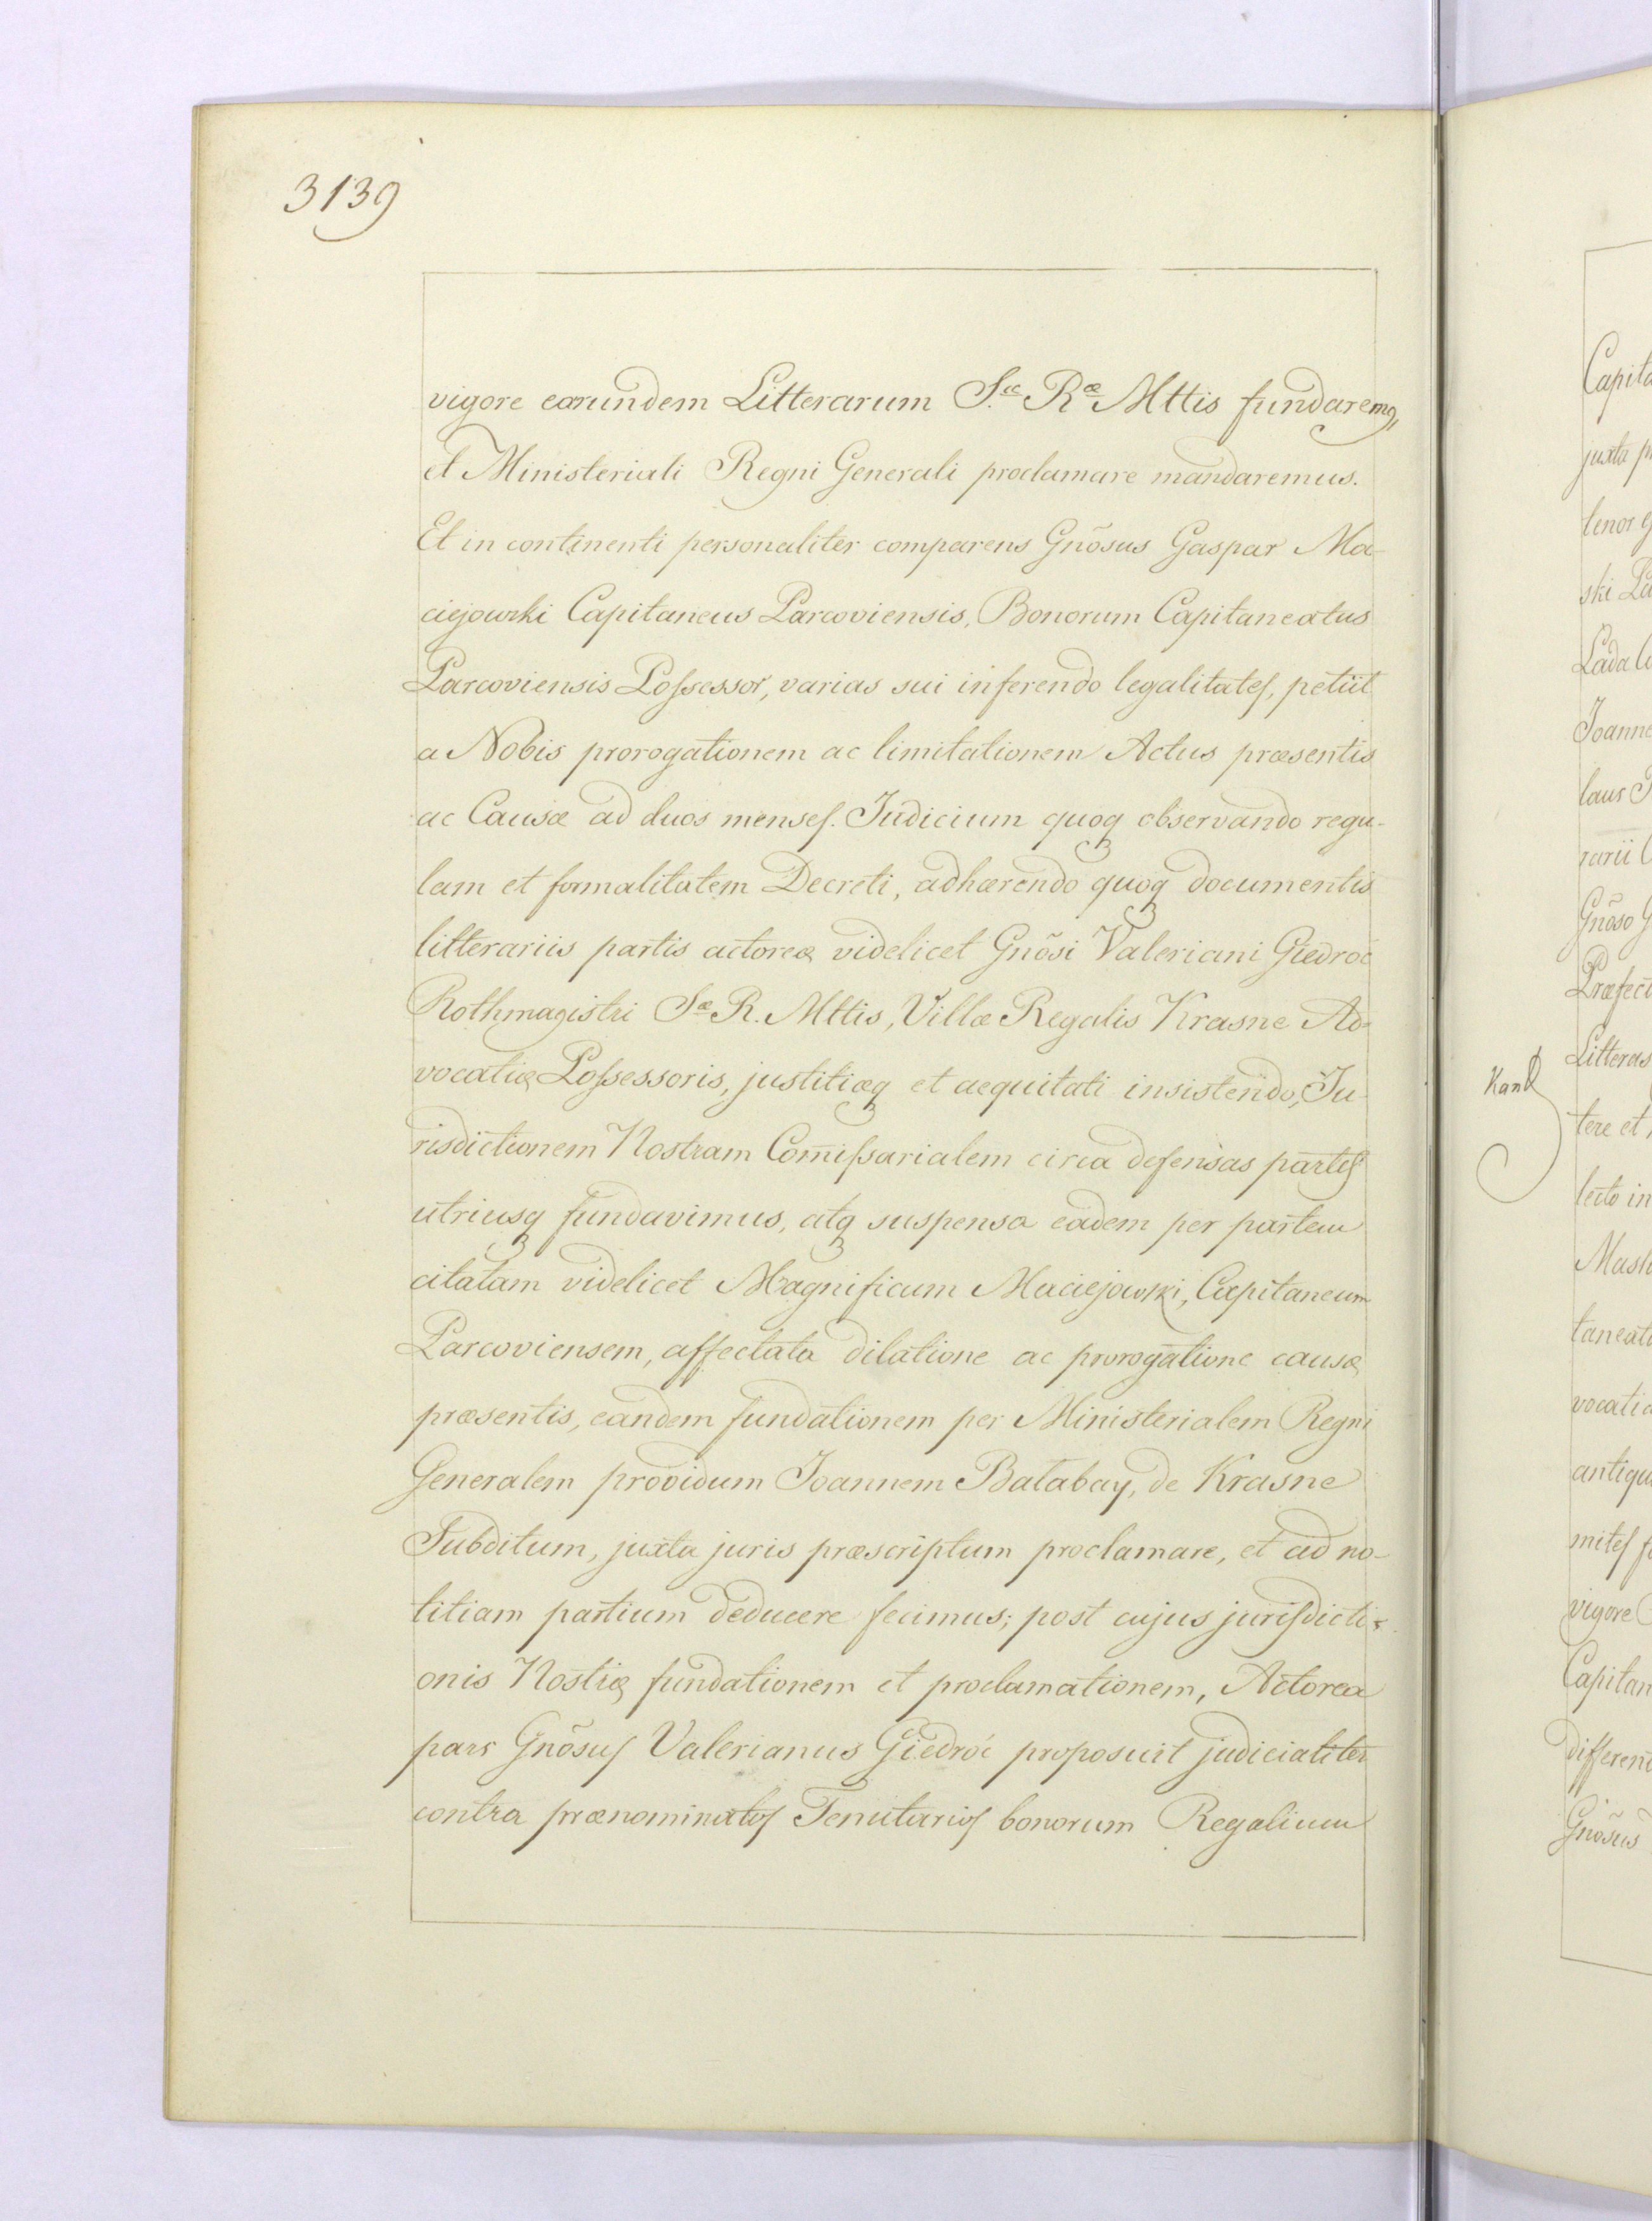 3139
vigore earundem Litterarum S.æ Ræ Mttis fundaremq,
et Ministeriali Regni Generali proclamare mandaremus.
Et in continenti personaliter comparens Gnõsus Gaspar Ma-
ciejowski Capitaneus Parcoviensis, Bonorum Capitaneatus
Parcoviensis Poſsessor, varias sui inferendo legalitateſ, petiit
a Nobis prorogationem ac limitationem Actus præsentis
ac Causæ ad duos menseſ. Judicium quoq observando regu-
lam et formalitatem Decreti, adhærendo quoq documentis
litterariis partis actoreæ videlicet Gnõsi Valeriani Giedroć
Rothmagistri Sæ R. Mttis, Villæ Regalis Krasne Ad-
vocatiæ Poſsessoris, justitiæq et aequitati insistendo, Ju-
risdictionem Nostram Com̃iſsarialem circa defensas parteſ
utriusq fundavimus, atq suspensa eadem per partem
citatam videlicet Magnificum Maciejowski, Capitaneum
Parcoviensem, affectata dilatione ac prorogatione causæ
præsentis, eandem fundationem per Ministerialem Regni
Generalem providum Joannem Batabay, de Krasne
Subditum, juxta juris præscriptum proclamare, et ad no-
titiam partium deducere fecimus; post cujus juriſdicti-
onis Nostræ fundationem et proclamationem, Actorea
pars Gnõsuſ Valerianus Giedroć proposuit judicialiter
contra prænominatoſ Tenutarioſ bonorum Regalium
Capita
juxta p
tenor
ski
Lada
Joanne
laus
rarii
Gnõso
Præfect
Litteras
tere et
lecto in
taneat
vocati
antiqu
miteſ
vigore
Capitan
different
Gnõsus